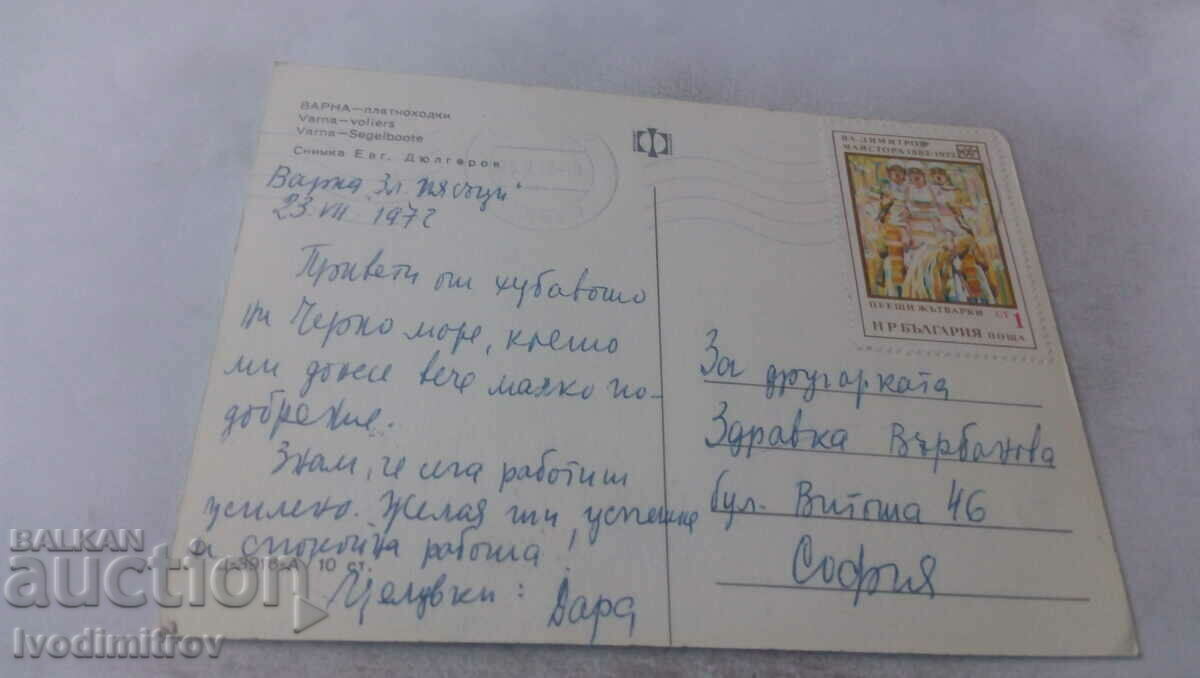 ВАРНА—платноходки
Varna—voliers
Varna—Segelboote
Снимка Евг. Дюлгеров
Варна „Зл. пясъци"
23. VII. 1972
Привети от хубавото
ни Черно море, което
ми донесе вече малко по-
добрение.
Знам, че сега работиш
усилено. Желая ти успешна
и спокойна работа!
Целувки: Вара
I-3916-А 10 ст.
ВЛ. ДИМИТРОВ
МАЙСТОРА 1882-1972
ПЕЕЩИ ЖЪТВАРКИ СТ 1
НР БЪЛГАРИЯ ПОЩА
За другарката
Здравка Върбанова
бул. Витоша 46
София
BALKAN
auction
Ivodimitrov